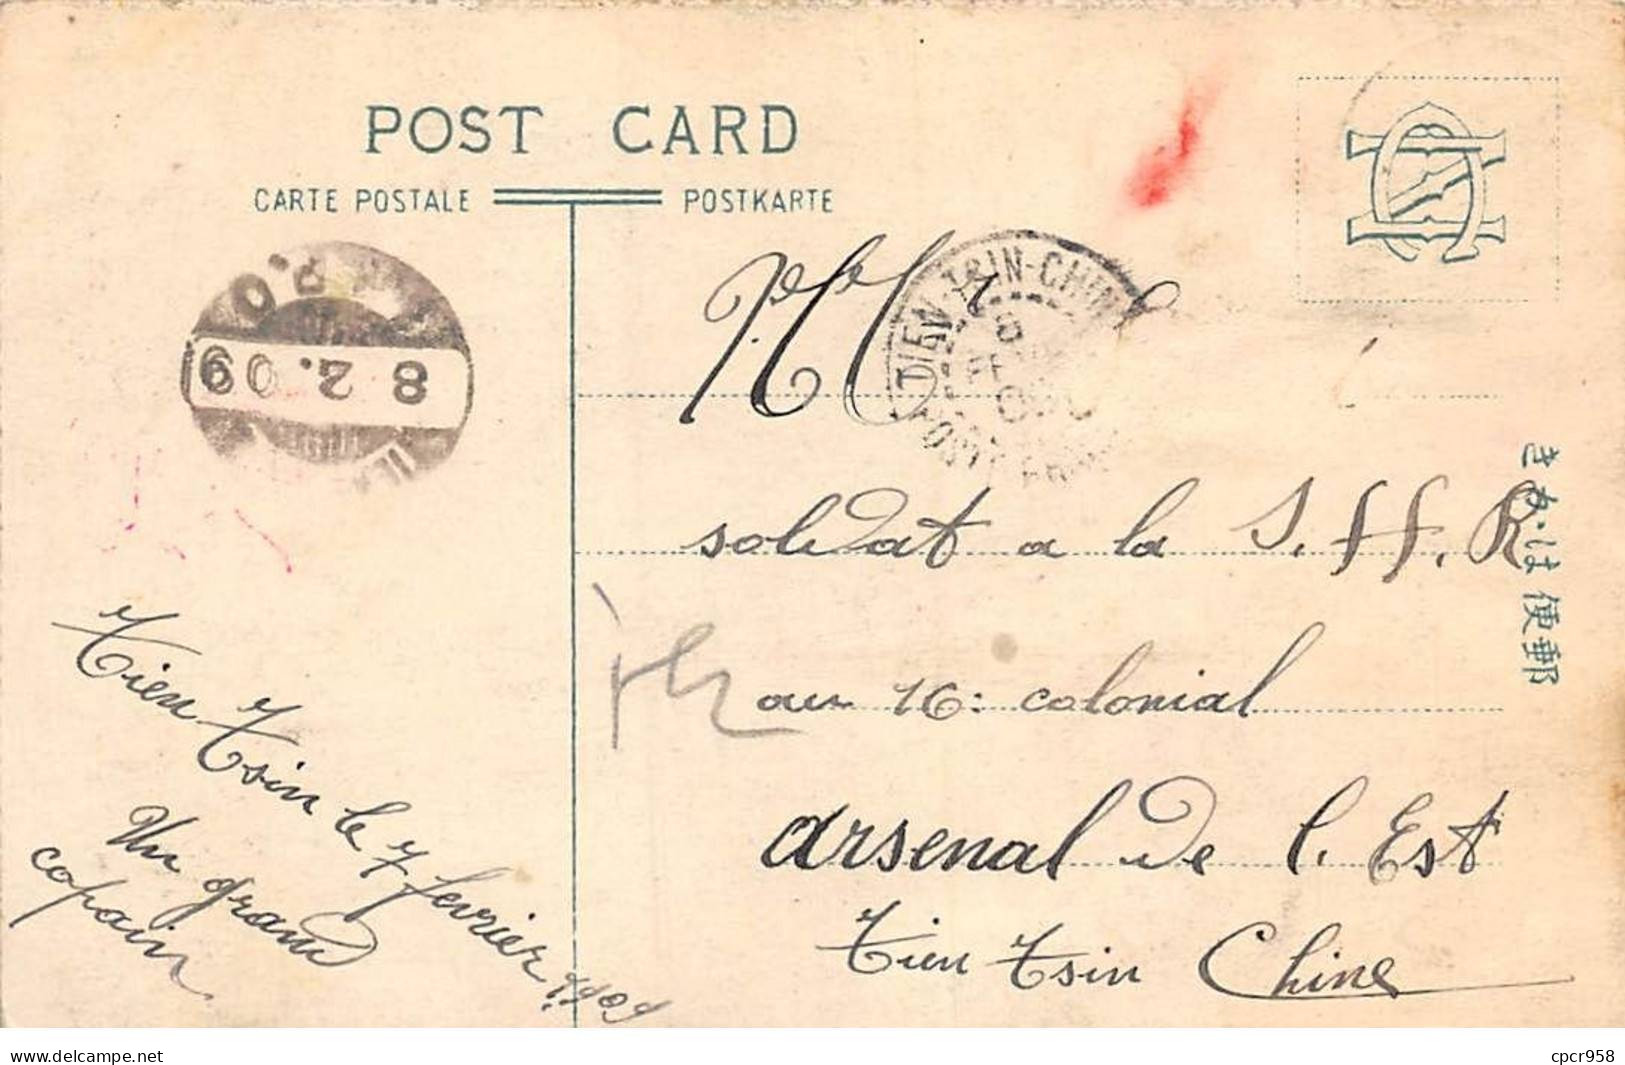 POST CARD
CARTE POSTALE
POSTKARTE
I.J.P.O.
8.2.09
TIEN-TSIN-CHINE
8
POSTE FRANÇ
soldat a la S. H. R
au 16: colonial
arsenal de l. Est
Tien Tsin Chine
きかは便郵
Tien Tsin le 7 fevrier 1909
Un grand
copain.
cpcr958
https://www.delcampe.net